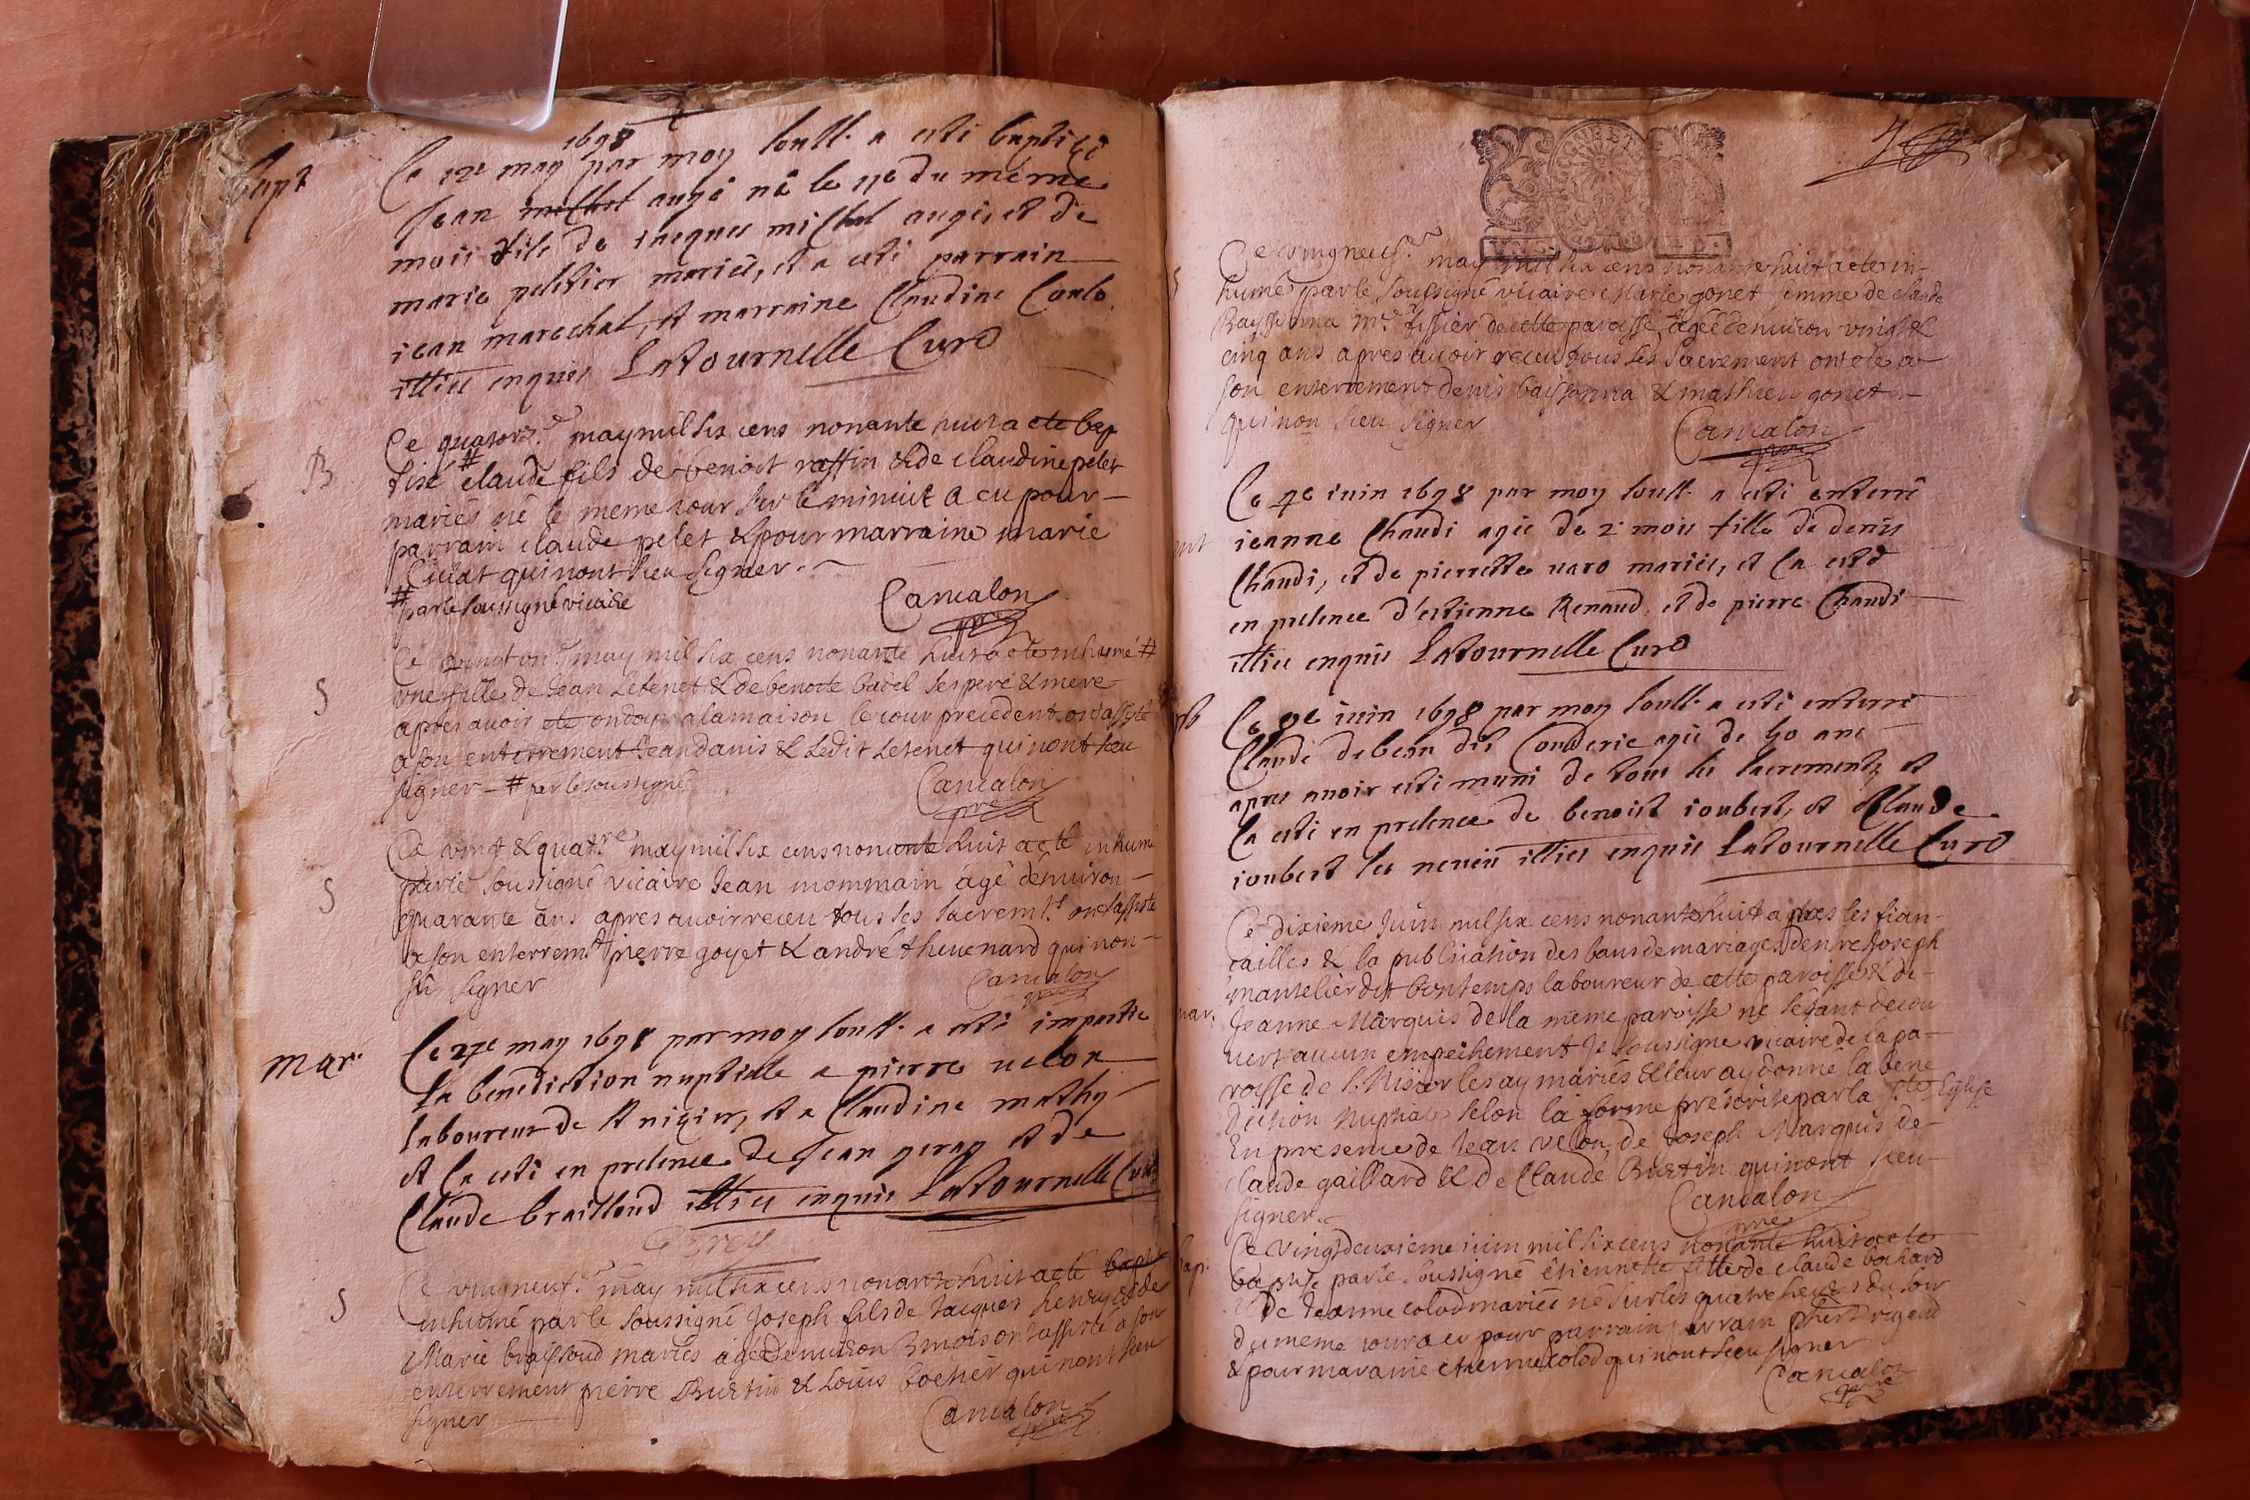 1698
bapt
Ce 12e may par moy souss. a esté baptisé
Jean michel augé né le 11e du méme
mois fils de iacques michel augé, et de
marie peltier mariés, et a esté parrain
iean marechal, et marraine Claudine Coulo
illiec enquis LaTournelle Curé
B
Ce quator.e may mil six cens nonante huit a ete bap
tisé # claude fils de benoit raffin & de claudine pelet
mariés né le meme iour sur le minuit a eu pour
parrain claude pelet & pour marraine marie
qui nont sceu signer.
# par le soussigné vicaire
Camalon
pre
S
Ce may mil six cens nonante huit a eté inhumé #
une fille de Jean Letenet & de benoite badel ses pere & mere
apres avoir ete ondoyé a la maison le iour precedent ont assisté
a son enterrement Jean danis & ledit Letenet qui nont sceu
signer # par le soussigné
Camalon
pre
S
Ce vingt & quat.re may mil six cens nonante huit a eté inhumé
par le soussigné vicaire Jean mommain agé denuiron
quarante ans apres auoir receu tous les sacrem.ts ont assisté
a son enterrem.t pierre goyet & andré theuenard qui non
sceu signer
Camalon
mar.
Ce 27e may 1698 par moy souss. a esté impartie
la benediction nuptialle a pierre uelon
laboureur de St nizier, et a Claudine mathy
et ce esté en presence de Jean geray et de
Claude braillond illiec enquis LaTournelle Curé
S
Ce vingneuf.e may mil six cens nonante huit a eté bapt
inhumé par le soussigné Joseph fils de Jacques henry & de
Marie braillond mariés agé denuiron 3 mois ont assisté a son
enterrement pierre Burtin & Louis Bocher qui nont sceu
signer
Camalon
Ce vingneuf.e may mil six cens nonante huit a eté in-
humé par le soussigné vicaire Marie gonet femme de claude
Bayssonna M.e tissier de cette paroisse agée denuiron vingt &
cinq ans apres auoir receu tous les sacrement ont eté a
son enterrement denis bayssonna & mathieu gonet
qui non sceu signer
Camalon
Ce 7e iuin 1698 par moy souss. a esté enterré
ieanne Chaudi agée de 2 mois fille de denis
Chaudi, et de pierrette uaro mariés, et ce esté
en presence d'estienne Renaud et de pierre Chaudi
illiec enquis LaTournelle Curé
Ce 9e iuin 1698 par moy souss. a esté enterré
Claude debean dit Couderie agée de 40 ans
apres auoir esté muni de tous les sacrements et
ce esté en presence de benoist ioubert, et Claude
ioubert ses neueu illiec enquis LaTournelle Curé
mar.
Ce dixieme Juin mil six cens nonante huit apres les fian-
cailles & la publication des bans de mariages dentre Joseph
mantelier dit bontemps laboureur de cette paroisse & de
Jeanne Marquis de la meme paroisse ne sétant decou
uert aucun empechement Je soussigné vicaire de la pa-
roisse de S. Nisier les ay mariés & leur ay donné la bene
diction Nuptiale selon la forme préscrite par la Ste Eglise
En presence de Jean velon, de Joseph Marquis de
Claude gaillard & de Claude Burtin qui nont sceu
signer.
Camalon
pre
bap.
Ce vingtdeuxieme iuin mil six cens nonante huit a ete
baptisé par le soussigné étiennette fille de claude bochard
& De Jeanne colod mariés né sur les quatre heures du soir
du meme iour a eu pour parrain
& pour maraine étienne colod qui nont sceu signer
Camalon